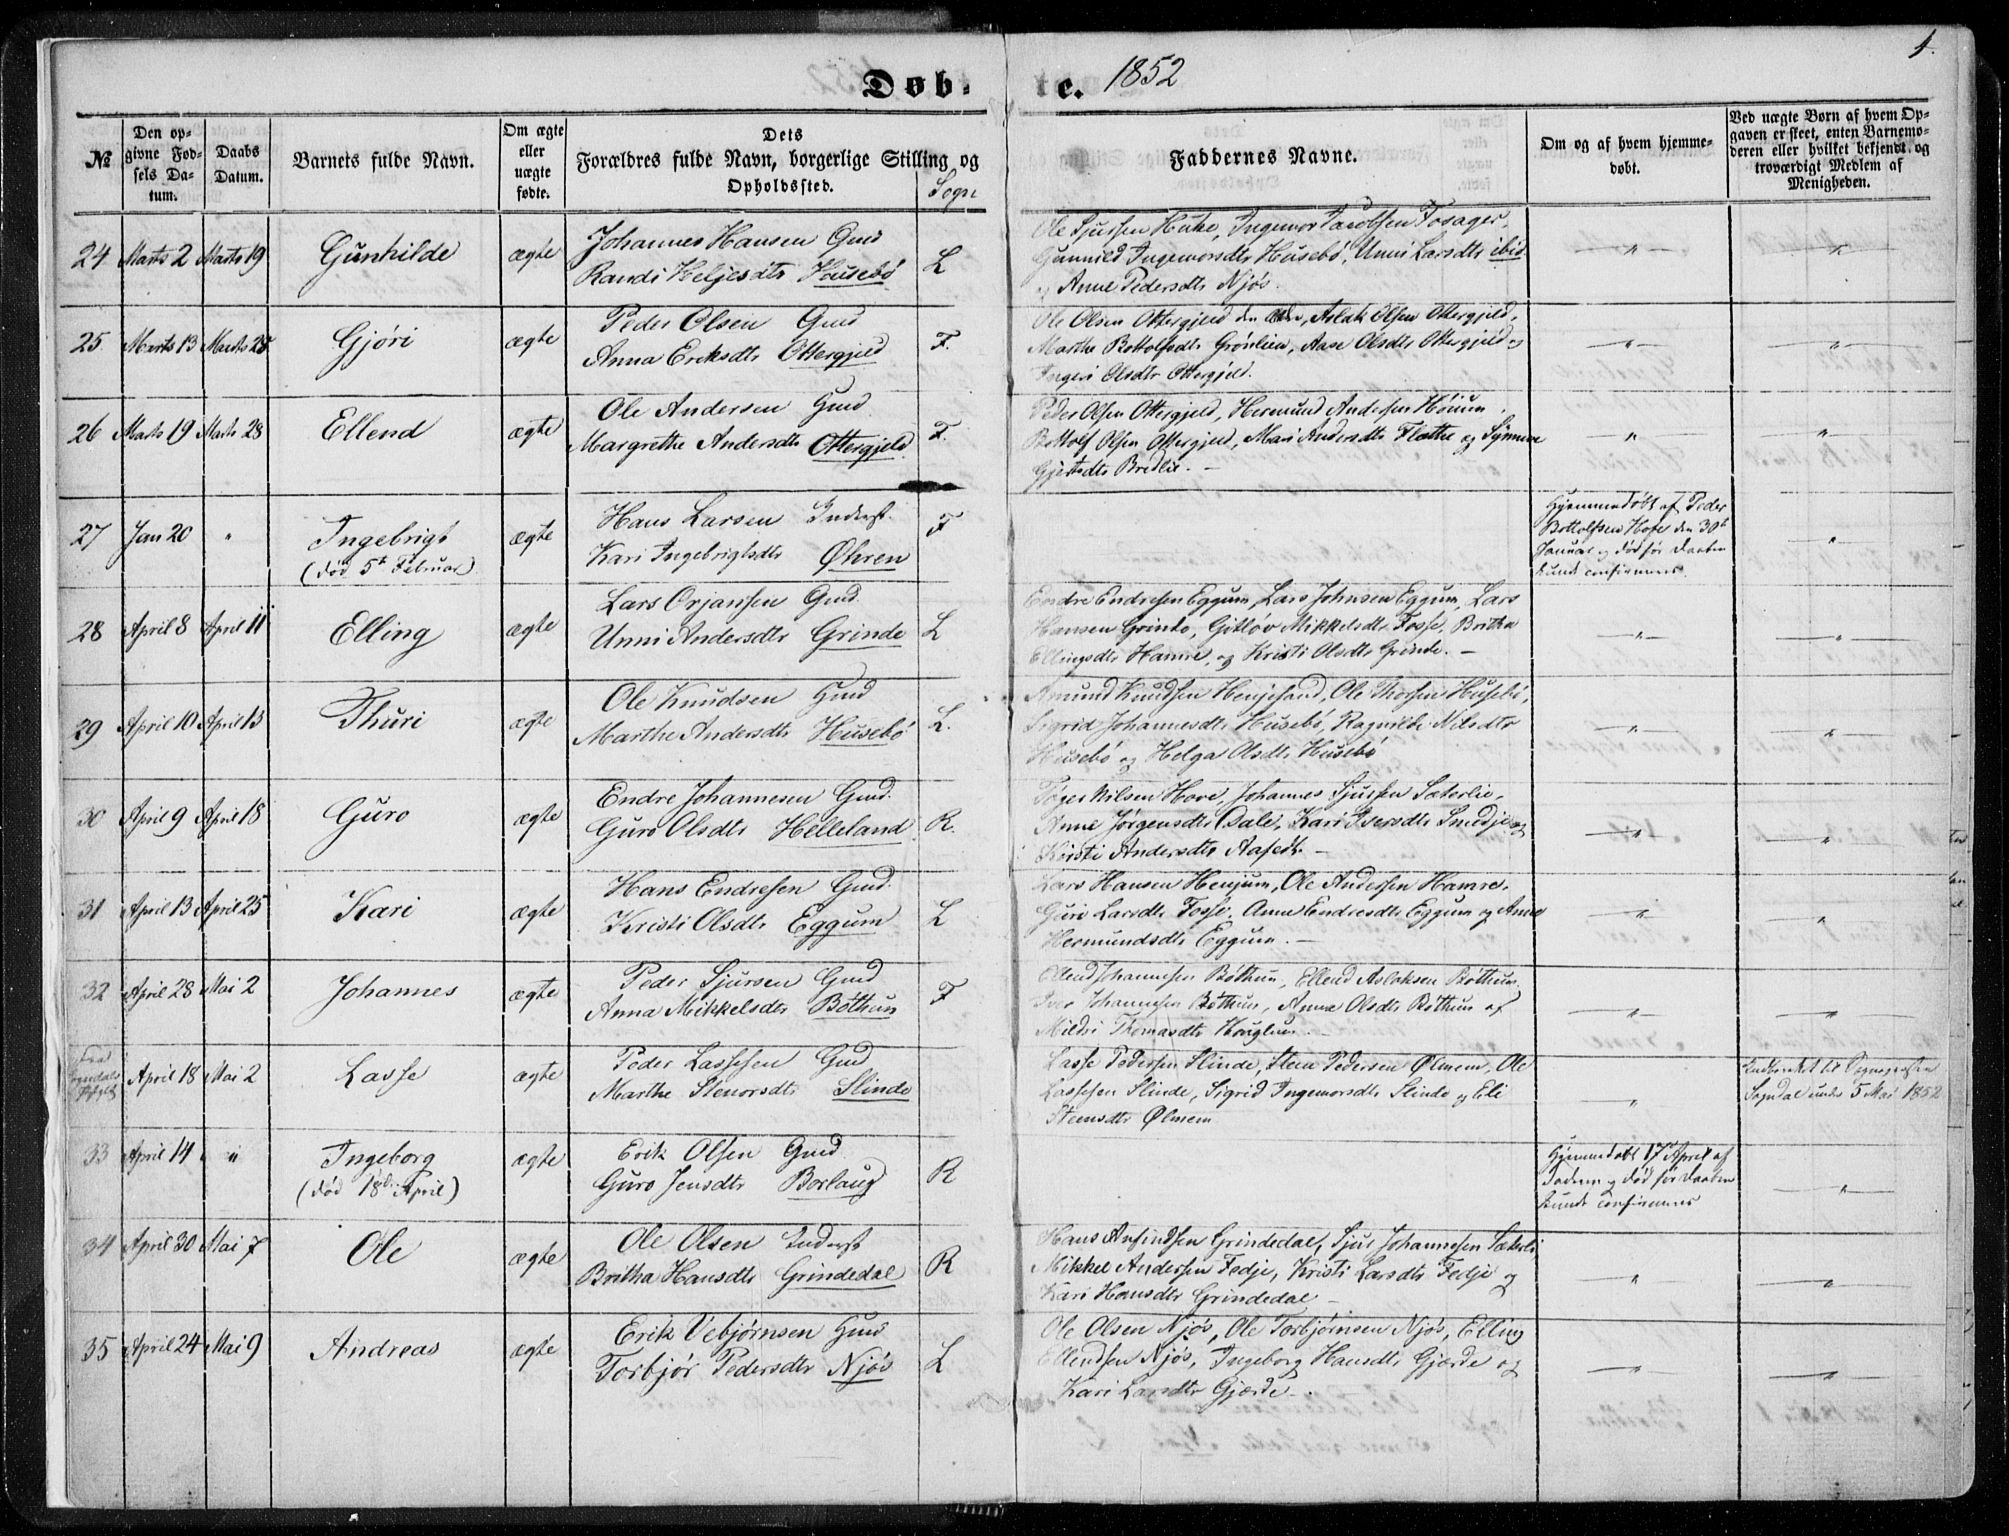 4.
Døb- te. 1852
№
Den op-
givne Fød-
sels Da-
tum.
Daabs
Datum.
Barnets fulde Navn.
Om ægte
eller
uægte
fødte.
Dets
Forældres fulde Navn, borgerlige Stilling og
Opholdssted.
Sogn
Faddernes Navne.
Om og af hvem hjemme-
døbt.
Ved uægte Børn af hvem Op-
gaven er skeet, enten Barnemo-
deren eller hvilket bekjendt og
troværdigt Medlem af
Menigheden.
24 Marts 2 Marts 19 Gunhilde ægte
Johannes Hansen Gmd
Randi Heljesdtr Husebö L
Ole Sjursen Huke, Ingemor Jacobsen Fosager,
Gunnild Ingemorsdtr Husebö, Unni Larsdtr ibid
og Anne Pedersdtr Njøs.
25 Marts 13 Marts 25 Gjøri ægte
Peder Olsen Gmd
Anna Eriksdtr Ottergjeld F.
Ole Olsen Ottergjeld den , Aslak Olsen Ottergjeld,
Marthe Bottolfsdtr Grønlien, Aase Olsdtr Ottergjeld og
Ingeri Olsdtr Ottergjeld.
26 Marts 19 Marts 28 Ellend ægte
Ole Andersen Gmd
Margrethe Andersdtr Ottergjeld F.
Peder Olsen Ottergjeld, Hermund Andersen Höium,
Bottolf Olsen Ottergjeld, Mari Andersdtr Flathe og Synneve
Gjertsdtr Bredlie. -
27 Jan 20 " Ingebrigt
(död 5t Februar) ægte
Hans Larsen Inderst.
Kari Ingebrigtsdtr Øhren F
Hjemmedöbt af Peder
Bottolfsen Hofe den 30t
Januar og död för Daaben
kunde confirmeres.
28 April 8 April 11 Elling ægte
Lars Orjansen Gmd.
Unni Andersdtr Grinde L
Endre Endresen Eggum, Lars Johnsen Eggum, Lars
Hansen Grinde, Gitløv Mikkelsdtr Fosse, Britha
Ellingsdtr Hamre, og Kristi Olsdtr Grinde. -
29 April 10 April 13 Thuri ægte
Ole Knudsen Gmd
Marthe Andersdtr Husebö L.
Amund Knudsen Henjesand, Ole Thorsen Husebö,
Sigrid Johannesdtr Husebö, Ragnilde Nilsdtr
Husebö og Helga Olsdtr Husebö
30 April 9 April 18 Guro ægte
Endre Johannesen Gmd.
Guro Olsdtr Helleland R.
Töger Nilsen Hove, Johannes Sjursen Sæterlie,
Anne Jørgensdtr Dale, Kari Iversdtr Smedje og
Kirsti Andersdtr Aafedt. -
31 April 13 April 25 Kari ægte
Hans Endresen Gmd.
Kristi Olsdtr Eggum L
Lars Hansen Henjum, Ole Andersen Hamre,
Guri Larsdtr Fosse, Anne Endresdtr Eggum og Anna
Hermundsdtr Eggum. -
32 April 28 Mai 2 Johannes ægte
Peder Sjursen Gmd
Anna Mikkelsdtr Böthun F
Ellend Johannesen Böthun, Ellend Aslaksen Böthun,
Iver Johannesen Böthun, Anna Olsdtr Böthun af
Mildri Thomasdtr Houglum. -
Fra
Sogndals
April 18 Mai 2 Lasse ægte
Peder Lassesen Gmd
Marthe Stenorsdtr Slinde
Lasse Pedersen Slinde, Steen Pedersen Ølmem, Ole
Lassesen Slinde, Sigrid Ingemorsdtr Slinde og Eli
Steensdtr Ølmem
Indberettet til Sognepresten
Sogndal under 5 Mai 1852
33 April 14 " Ingeborg
(död 18de April) ægte
Erik Olsen Gmd
Guro Jensdtr Borlaug R
Hjemmedöbt 17 April af
Faderen og död för Daaben
kunde confirmeres
34 April 30 Mai 7 Ole ægte
Ole Olsen Inderst
Britha Hansdtr Grindedal R
Hans Anfindsen Grindedal, Sjur Johannesen Sæterli
Mikkel Andersen Fedje, Kristi Larsdtr Fedje og
Kari Hansdtr Grindedal -
35 April 24 Mai 9 Andreas ægte
Erik Vebjørnsen Gmd
Torbjør Pedersdtr Njös L
Ole Olsen Njös, Ole Torbjørnsen Njös, Elling
Ellendsen Njös, Ingeborg Hansdtr Gjærde og
Kari Larsdtr Gjærde. -